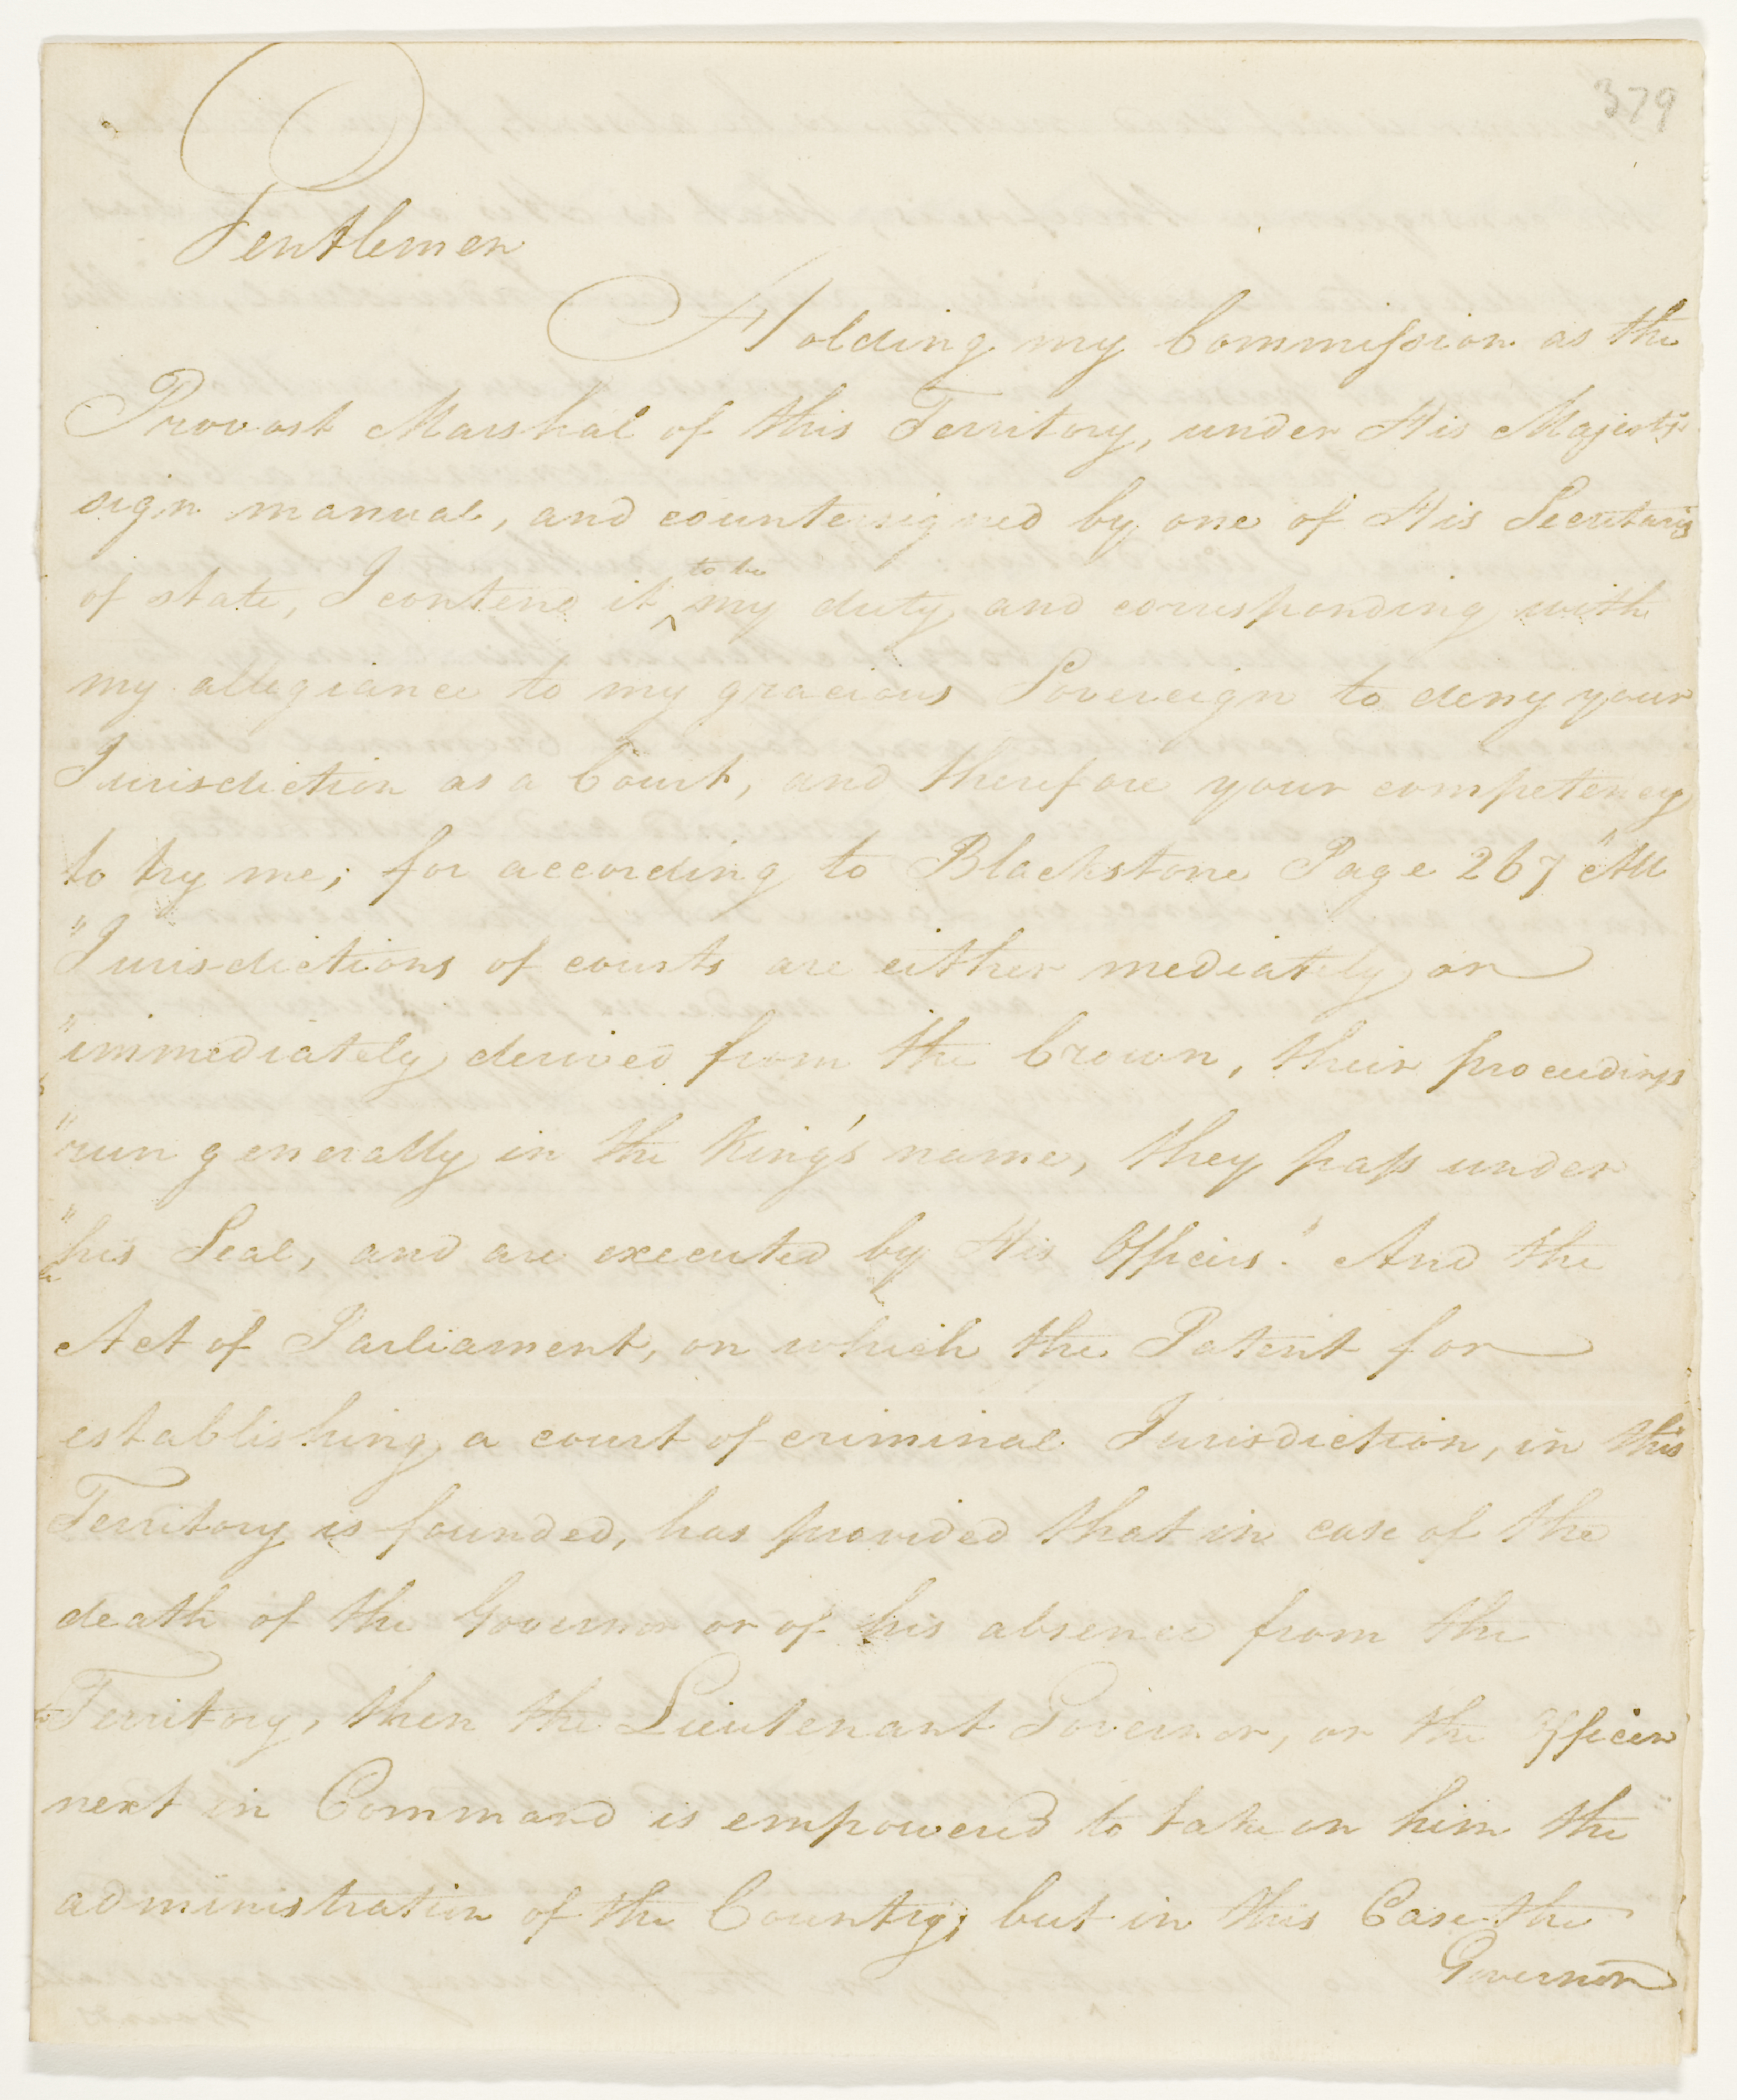 379
Gentlemen
Holding my Commission as the
Provost Marshal of this Territory, under His Majesty's
sign manual, and countersigned by one of His Secretaries
of state, I contend it ^to be my duty and corresponding with
my allegiance to my gracious Sovereign to deny your
Jurisdiction as a Court, and therefore your competency
to try me; for according to Blackstone Page 267 "All
"Jurisdictions of courts are either mediately or
"immediately derived from the Crown, their proceedings
"run generally in the King's name, they pass under
"his Seal, and are executed by His Officers." And the
Act of Parliament, on which the Patent for
establishing a court of criminal Jurisdiction, in this
Territory is founded, has provided that in case of the
death of the Governor or of his absence from the
Territory, then the Lieutenant Governor, or the Officer
next in Command is empowered to take on him the
administration of the Country; but in this Case the
Governor